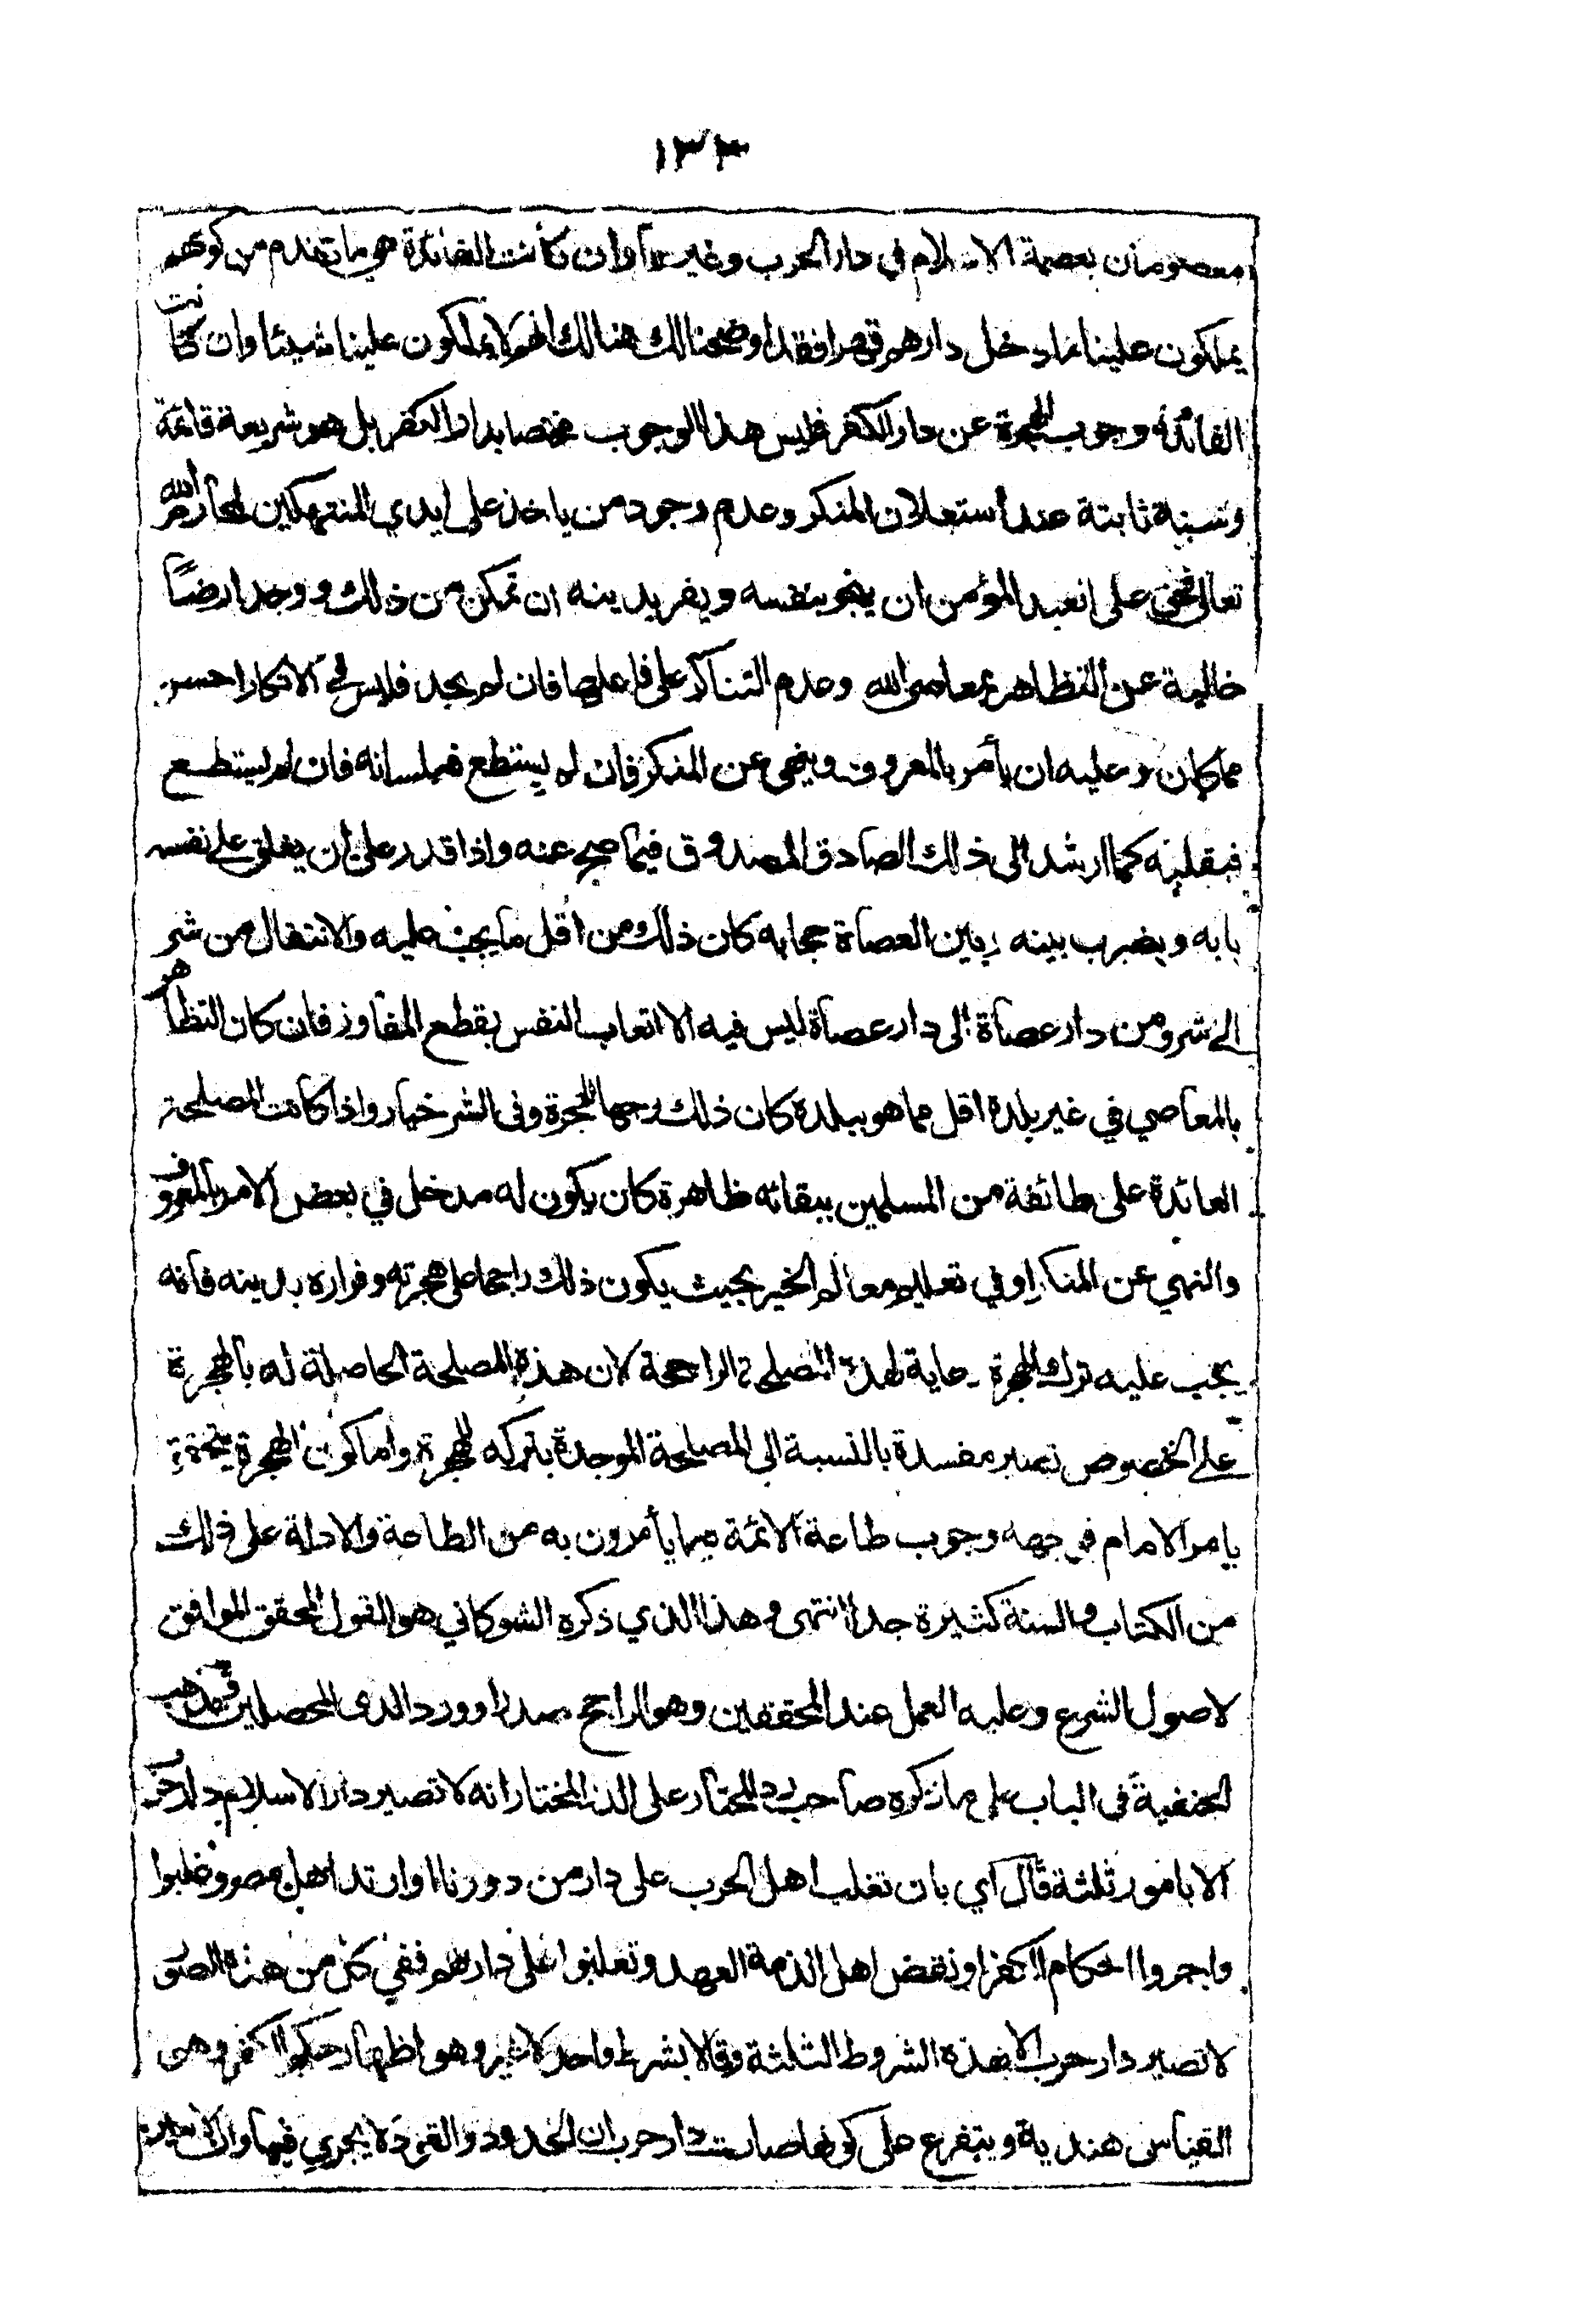 ١٣٣
معصومان بعصمة الاسلام في دار الحرب وغيرها وان كانت الفائدة هي ما تقدم من كونهم
يملكون علينا ما دخل دارهم قهرا فقد اوضحنا لك هنالك انهم لا يملكون علينا شيئا وان كانت
الفائدة وجوب الهجرة عن دار الكفر فليس هذا الوجوب مختصا بدار الكفر بل هو شريعة قائمة
وسنة ثابتة عند استعلان المنكر وعدم وجود من ياخذ على ايدي المنتهكين لمحارم الله
تعالى فحق على العبد المؤمن ان ينجو بنفسه ويفر بدينه ان تمكن من ذلك ووجد ارضًا
خالية عن التظاهر بمعاصى الله وعدم التناكر على فاعليها فان لم يجد فليس في الامكان احسن
مما كان وعليه ان يأمر بالمعروف وينهى عن المنكر فان لم يستطع فبلسانه فان لم يستطع
فبقلبه كما ارشد الى ذلك الصادق المصدوق فيما صح عنه واذا قدر على ان يغلق على نفسه
بابه ويضرب بينه وبين العصاة حجابه كان ذلك من اقل ما يجب عليه والانتقال من شر
الى شر ومن دار عصاة الى دار عصاة ليس فيه الا اتعاب النفس بقطع المفاوز فان كان التظاهر
بالمعاصي في غير بلده اقل مما هو ببلده كان ذلك وجها للهجرة وفى الشر خيار واذا كانت المصلحة
العائدة على طائفة من المسلمين ببقائه ظاهرة كان يكون له مدخل في بعض الامر بالمعروف
والنهي عن المنكر او في تعليم معالم الخير بحيث يكون ذلك راجحا على هجرته وفراره بدينه فانه
يجب عليه ترك الهجرة رعاية لهذه المصلحة الراجحة لان هذه المصلحة الحاصلة له بالهجرة
على الخصوص تصير مفسدة بالنسبة الى المصلحة الموجدة بتركه الهجرة واما كون الهجرة
يامر الامام فوجهه وجوب طاعة الائمة فيما يأمرون به من الطاعة والادلة على ذلك
من الكتاب والسنة كثيرة جدا انتهى وهذا الذي ذكره الشوكاني هو القول المحقق الموافق
لاصول الشرع وعليه العمل عند المحققين وهو الراجح صدرا ووردا لدى المحصلين ومذهب
الحنفية فى الباب على ما ذكره صاحب رد المحتار على الدر المختار انه لا تصير دار الاسلام دار حرب
الا بامور ثلثة قال اي بان تغلب اهل الحرب على دار من دورنا او ارتد اهل مصر وغلبوا
واجروا احكام الكفر او نقض اهل الذمة العهد وتغلبوا على دارهم ففي كل من هذه الصور
لا تصير دار حرب الا بهذه الشروط الثلثة وقالا بشرط واحد لا غير وهو اظهار حكم الكفر وهى
القياس هندية ويتفرع على كونها صارت دار حرب ان الحدود والقود لا يجري فيها وان